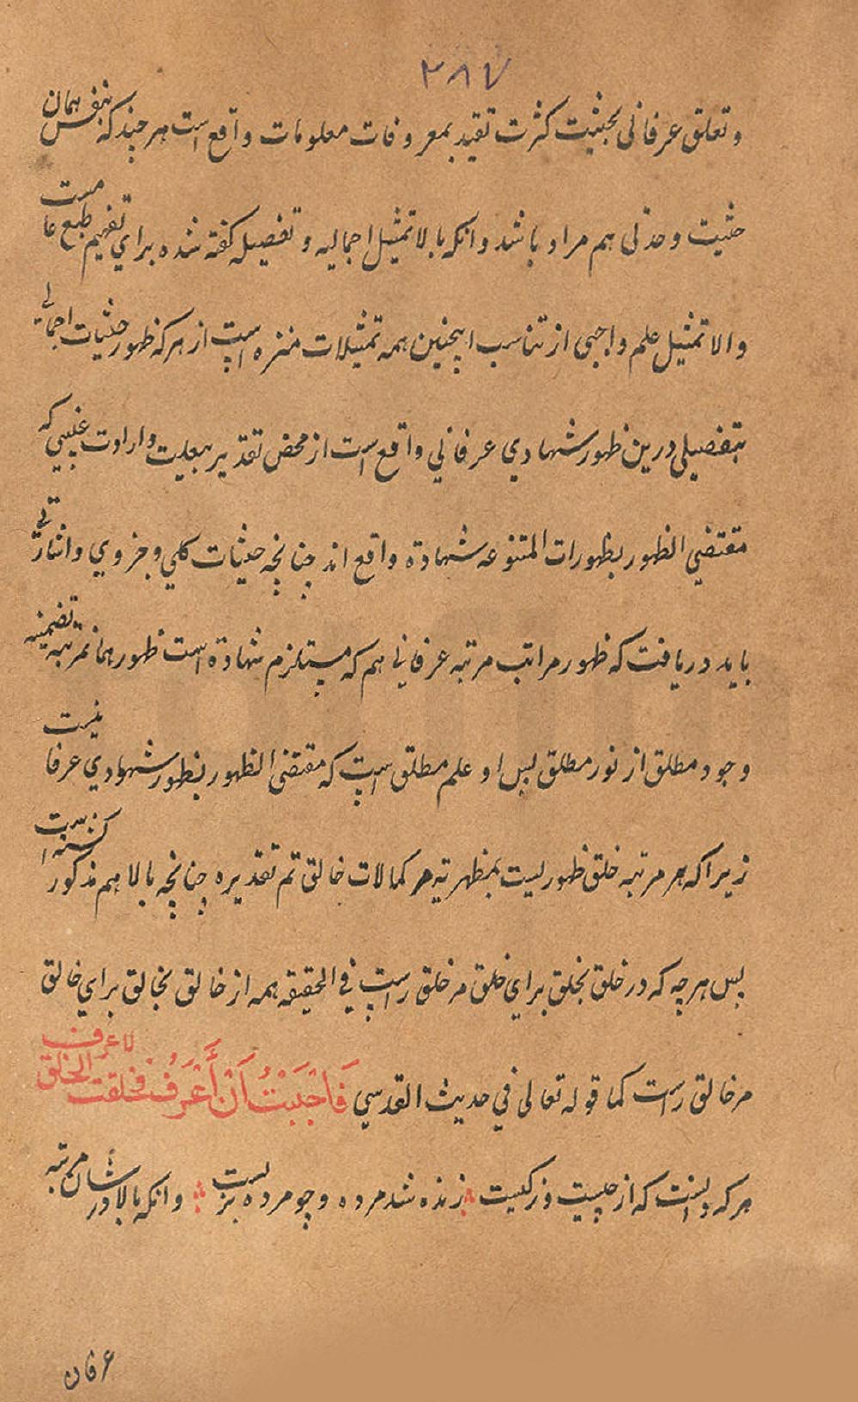 ۲۸۷
و تعلق عرفانی بحیثیت کثرت تقید بمعروفات معلومات واقع است هر چند که بنفس همان
حثیت وحدتی هم مراد باشد و انکه بالا تمثیل اجمالیه و تفصیله کفته شده برای تفهیم طبع عامست
و الا تمثیل علم واجبی از تناسب اینچنین همه تمثیلات منزه است از هر که ظهور حثیات اجمالی
بتفصیلی درین ظهور شهادی عرفانی واقع است از محض تقدیر بمعیت و ارادت غیبی که
مقتضی الظهور بظهورات المتنوعه شهادة واقع اند چنانچه حثیات کلی و جزوی و اشارتی
باید دریافت که ظهور مراتب مرتبه عرفانی هم که مستلزم شهادة است ظهور همانمرتبه تضمینه
وجود مطلق از نور مطلق پس او علم مطلق است که مقتضی الظهور بظهور شهادی عرفانیست
زیرا که هر مرتبه خلق ظهوریست بمظهریته هر کمالات خالق تم تقدیره چنانچه بالا هم مذکور کشته است
پس هر چه که در خلق بخلق برای خلق مر خلق راست فی الحقیقه همه از خالق بخالق برای خالق
مر خالق راست کما قوله تعالی فی حدیث القدسی فَاَحْبَبْتُ اَنْ أُعْرَفَ فخلقت الخلق لاعرف
هر که دانست که از چیست و ز کیست زنده شد مرده و چو مرده بزیست و انکه بالا در شان مرتبه
عرفان